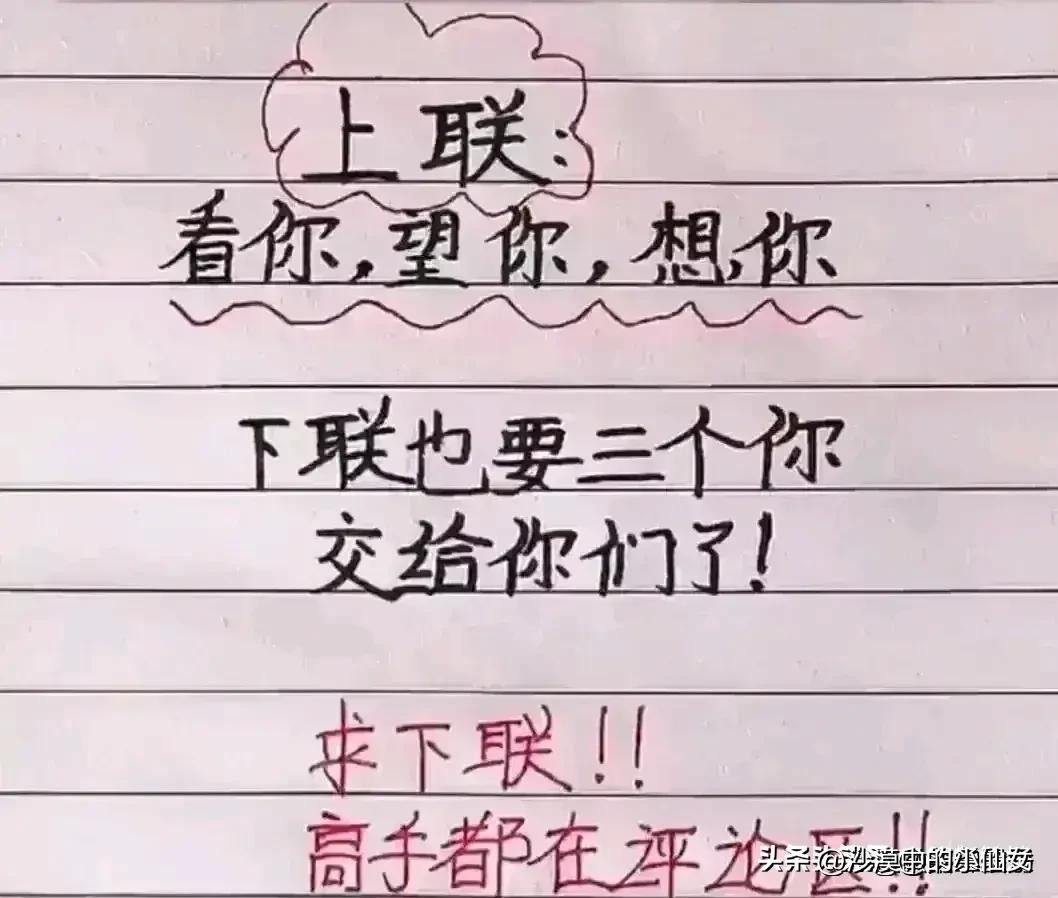 上联:
看你,望你,想你
下联也要三个你
交给你们了!
求下联!!
高手都在评论区!!
头条 @沙漠中的小仙女